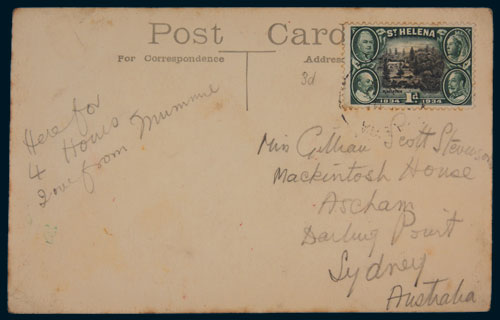 Post Card
For Correspondence
Address
3d
ST HELENA
1d
1834 1934
Here for
4 Hours
Love from Mummie
Miss Gillian Scott Stevenson
Mackintosh House
Ascham
Darling Point
Sydney
Australia